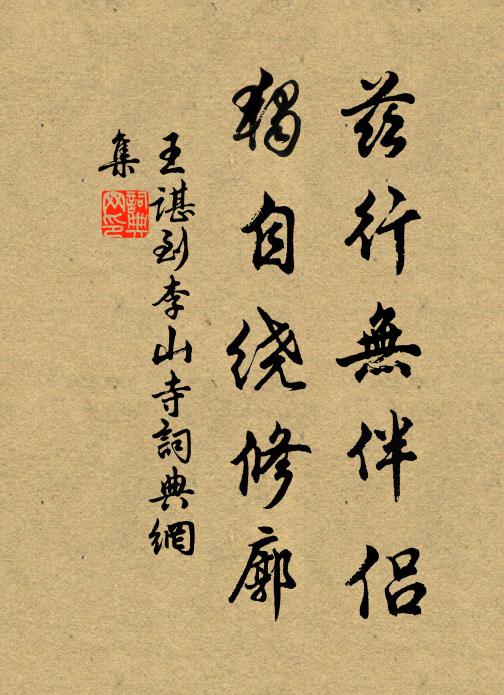 茲行無伴侶
獨自绕修廓
王諶到李山寺詞典網
集
詞典
網印